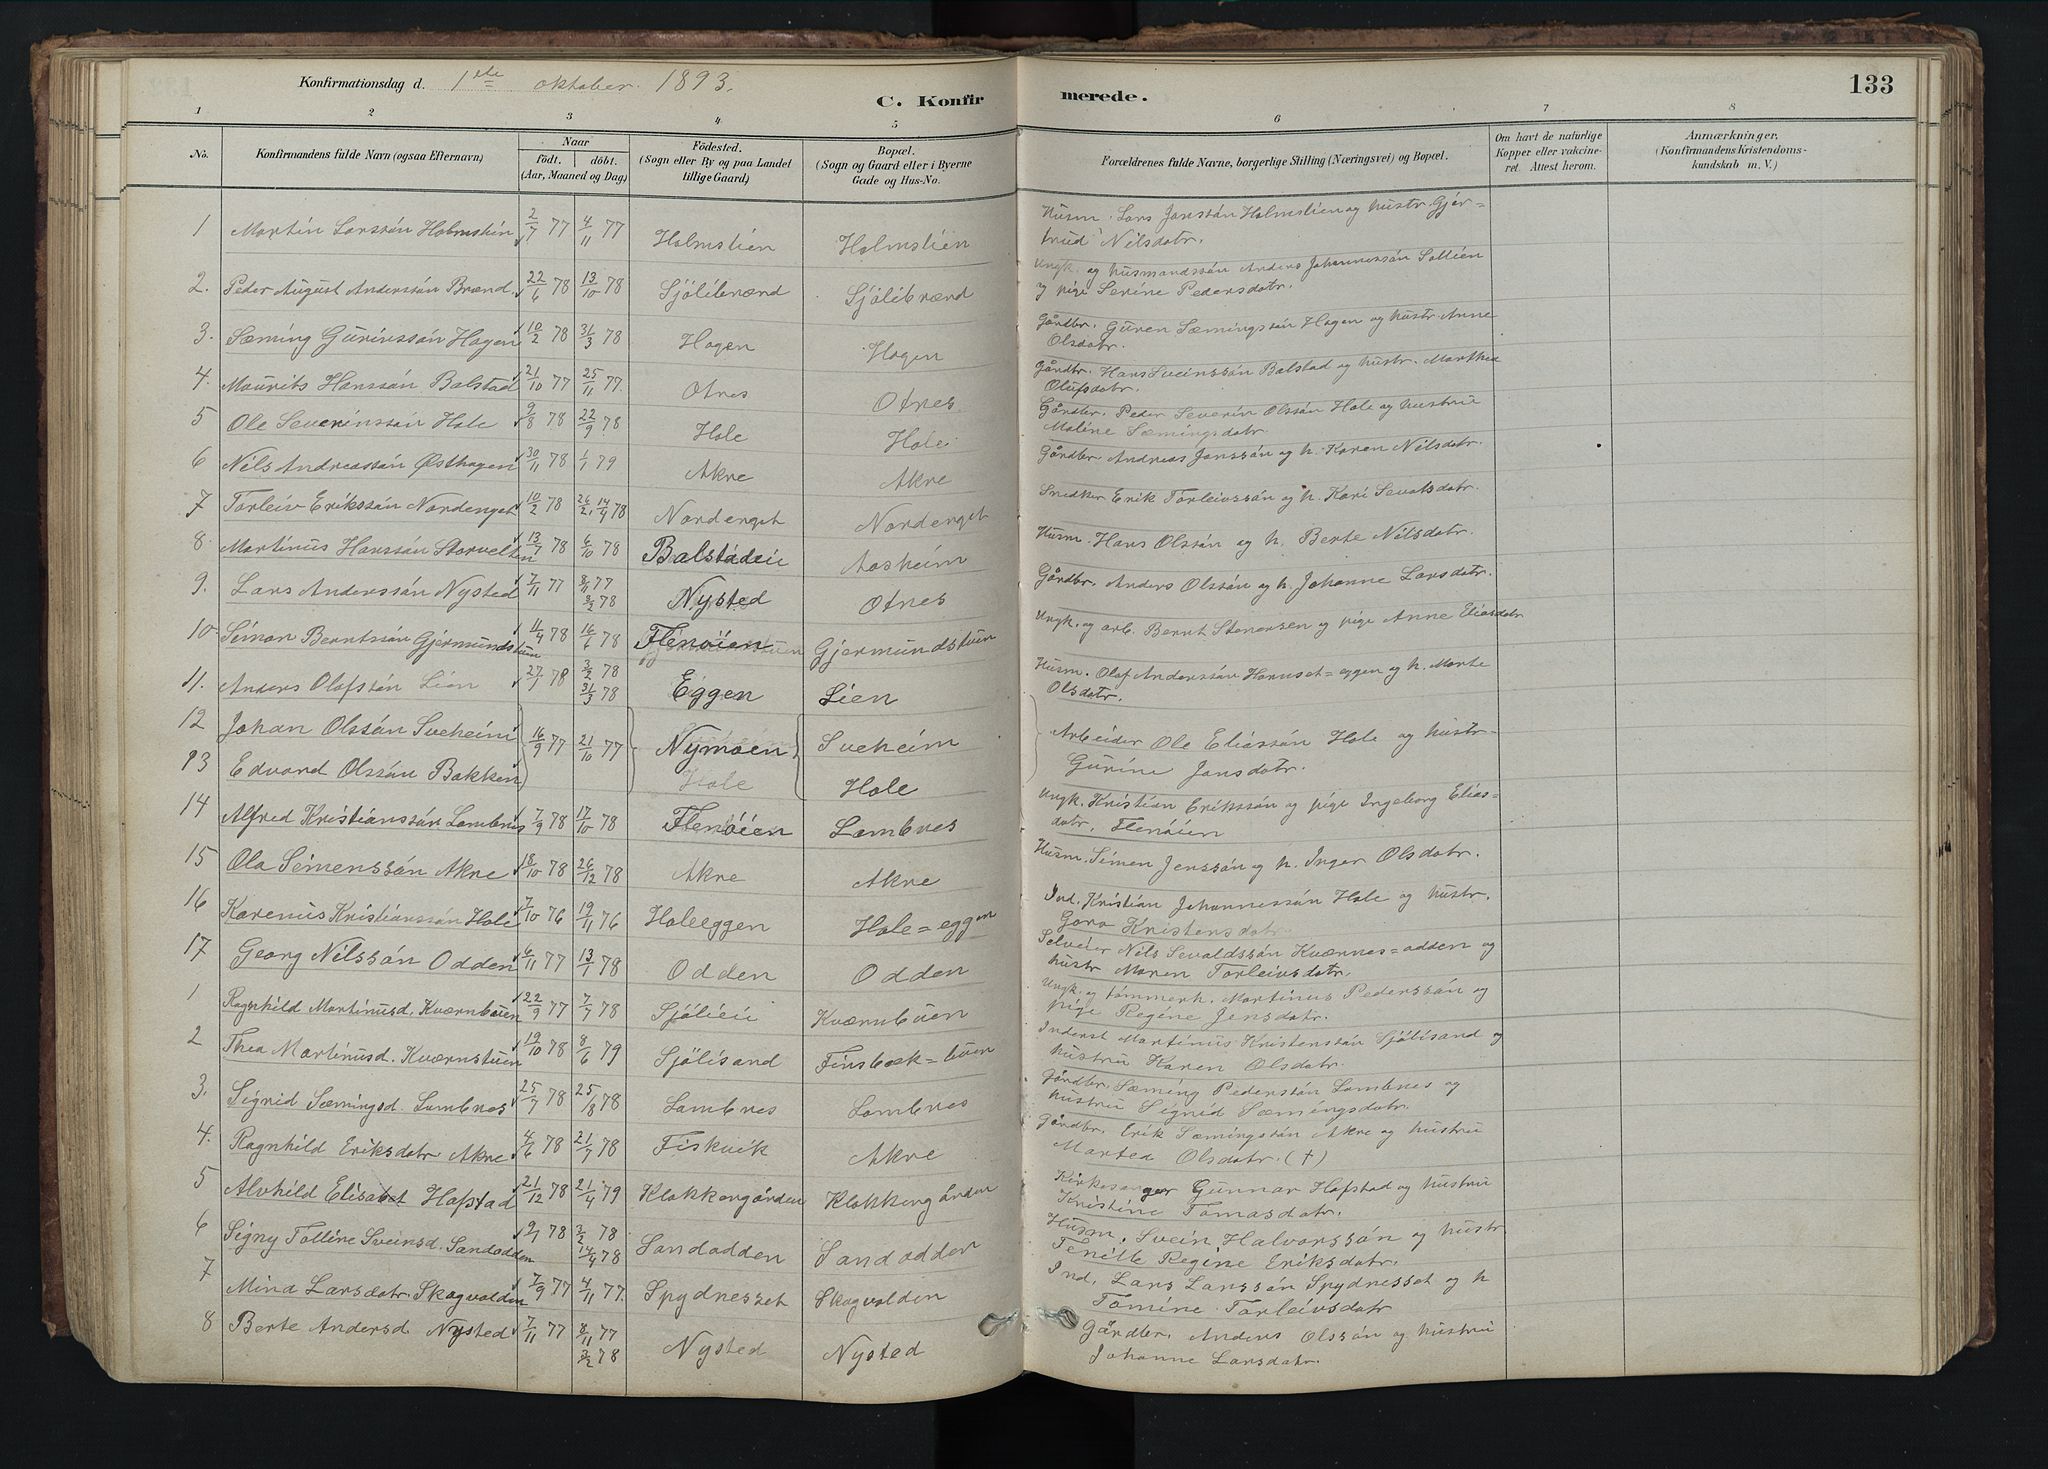 Konfirmationsdag d. 1ste oktober 1893.
C. Konfirmerede.
133
1 2 3 4 5 6 7 8
No.
Konfirmandens fulde Navn (ogsaa Efternavn)
Naar
födt. döbt.
(Aar, Maaned og Dag)
Födested.
(Sogn eller By og paa Landet
tillige Gaard)
Bopæl.
(Sogn og Gaard eller i Byerne
Gade og Hus-No.
Forældrenes fulde Navne, borgerlige Stilling (Næringsvei) og Bopæl.
Om havt de naturlige
Kopper eller vakcine-
ret. Attest herom.
Anmærkninger.
(Konfirmandens Kristendoms-
kundskab m. V.)
1 Martin Larssön Holmslien 2/7 77 4/11 77 Holmslien Holmslien Husm. Lars Janssön Holmslien og hustr. Gjer-
trud Nilsdatr.
2. Peder August Anderssön Brænd. 22/6 78 13/10 78 Sjölibrænd Sjölibrænd Ungk. og husmandssön Anders Johannessön Sollien
og pige Serine Pedersdatr.
3. Sæming Gurinssön Hagen 10/2 78 31/3 78 Hagen Hagen Gårdbr. Guren Sæmingssön Hagen og hustr. Anne
Olsdatr.
4. Maurits Hanssön Balstad 21/10 77 25/11 77. Otnes Otnes Gårdbr. Hans Sveinssön Balstad og hustr. Marthea
Olufsdatr.
5 Ole Severinssön Hole 9/8 78 22/9 78 Hole Hole Gårdbr. Peder Severin Olssön Hole og hustru
Maline Sæmingsdatr.
6 Nils Andreassön Østhagen 30/11 78 1/1 79 Akre Akre Gårdbr. Andreas Janssön og h. Karen Nilsdatr.
7 Torleiv Erikssön Nordenget 10/2 78 26/2, 14/4 78 Nordenget Nordenget Snedker Erik Torleivssön og h. Kari Sevatsdatr.
8. Martinus Hanssön Storvelten 13/7 78 6/10 78 Balstadeie Aasheim Husm. Hans Olssön og h. Berte Nilsdatr.
9. Lars Anderssön Nysted 7/11 77 8/11 77 3/2 78 Nysted Otnes Gårdbr. Anders Olssön og h. Johanne Larsdatr.
10 Simon Berntssön Gjermundstuen 11/4 78 16/6 78 Flenöien Gjermundstuen Ungk. og arb. Bernt Stenersen og pige Anne Eliasdatr
11. Anders Olafssön Lien 27/1 78 3/2 78 31/3 78 Eggen Lien Husm. Olaf Anderssön Harnset=eggen og h. Marte
Olsdatr.
12 Johan Olssön Sveheim 16/9 77 21/10 77 Nymoen Sveheim Arbeider Ole Eliassön Hole og hustr.
13 Edvard Olssön Bakken Hole Hole Gurine Jonsdatr.
14 Alfred Kristianssön Lombnes 7/9 78 17/10 78 Flenöien Lombnes Ungk. Kristian Erikssön og pige Ingeborg Elias=
datr. Flenöien
15 Ola Simenssön Akre 18/10 78 26/12 78 Akre Akre Husm. Simen Jenssön og h. Inger Olsdatr.
16 Karenus Kristianssön Hole 7/10 76 19/11 76 Holeeggen Hole=eggen Ind. Kristian Johannessön Hole og hustr.
Goro Kristensdatr.
17 Georg Nilssön Odden 6/11 77 13/1 78 Odden Odden Selveier Nils Sevaldssön Kværnes=odden og
hustr Maren Torleivsdatr.
1 Ragnhild Martinusd. Kværnbuen 22/9 77 7/7 78 Sjölieie Kværnbuen Ungk. og tömmerh. Martinus Pederssön og
pige Regine Jensdatr.
2 Thea Martinusd. Kværnstuen 19/10 78 8/6 79 Sjölisand Finsbæk=tuen Inderst Martinus Kristenssön Sjölisand og
hustru Karen Olsdatr.
3. Sigrid Sæmingsd. Lombnes 25/7 78 25/8 78 Lombnes Lombnes Gårdbr. Sæming Pederssön Lombnes og
hustru Sigrid Sæmingsdatr.
4. Ragnhild Eriksdatr Akre 4/6 78 21/7 78 Fiskvik Akre Gårdbr. Erik Sæmingssön Akre og hustru
Marted Olsdatr. (†)
5 Alvhild Elisabet Hofstad 21/12 78 21/4 79 Klokkergården Klokkergården Kirkesanger Gunnar Hofstad og hustru
Kristine Tomasdatr.
6 Signy Talline Sveinsd. Sandodden 2/1 78 3/2 78 14/4 78 Sandodden Sandodden Husm. Svein Halvorssön og hustr
Tenille Regine Eriksdatr.
7 Mina Larsdatr. Skogvolden 7/9 77 4/11 77. Spydnesset Skogvolden Ind. Lars Larssön Spydnesset og h
Tomine Torleivsdatr
8 Berte Andersd Nysted 7/11 77 8/11 77 3/2 78 Nysted Nysted Gårdbr. Anders Olssön og hustru
Johanne Larsdatr.